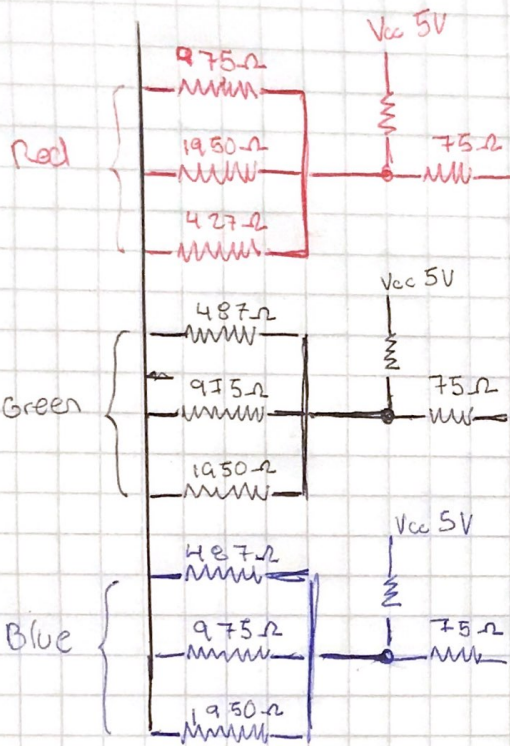 Vcc 5V
975Ω
Red
1950Ω
75Ω
427Ω
Vcc 5V
487Ω
Green
975Ω
75Ω
1950Ω
Vcc 5V
487Ω
Blue
975Ω
75Ω
1950Ω